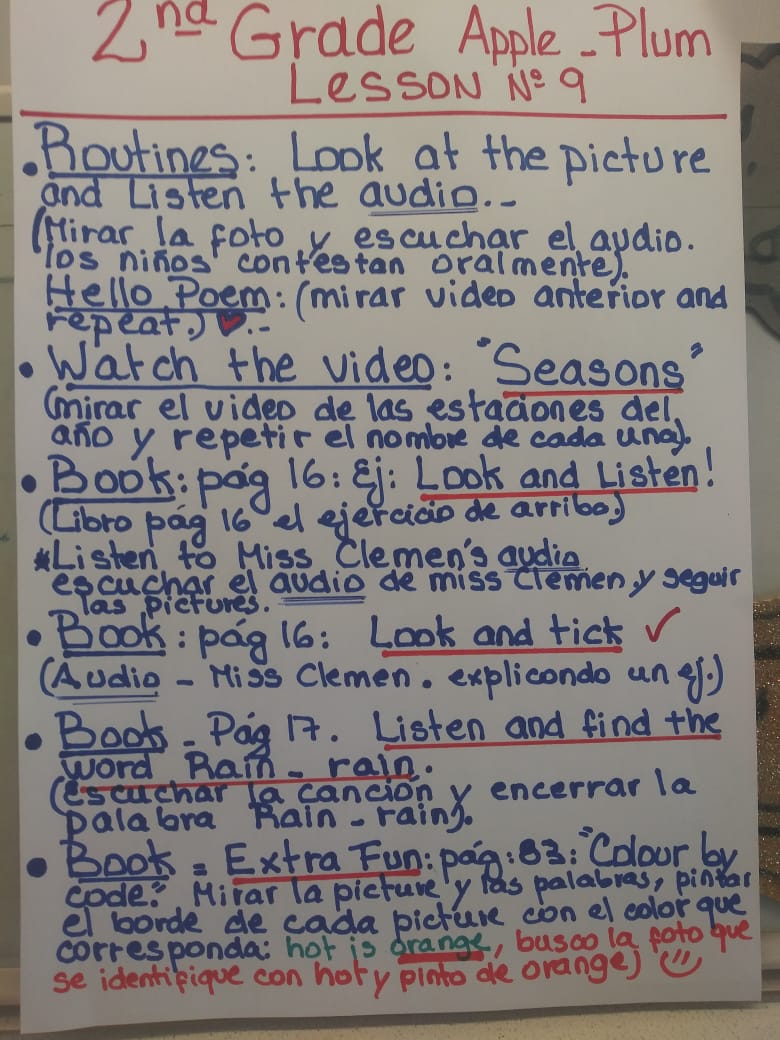 2nd Grade Apple - Plum
LESSON Nº 9
• Routines: Look at the picture
and Listen the audio.--
(Mirar la foto y escuchar el audio.
los niños contestan oralmente).
Hello Poem: (mirar video anterior and
repeat.) ♥.--
• Watch the video: "Seasons"
(mirar el video de las estaciones del
año y repetir el nombre de cada una).
• Book: pág 16: Ej: Look and Listen!
(Libro pág 16 el ejercicio de arriba)
*Listen to Miss Clemen's audio
escuchar el audio de miss Clemen y seguir
las pictures.
• Book: pág 16: Look and tick ✓
(Audio - Miss Clemen. explicando un ej.)
• Book - Pág 17. Listen and find the
word Rain - rain.
(escuchar la canción y encerrar la
palabra Rain - rain).
• Book = Extra Fun: pág: 83: "Colour by
code." Mirar la picture y las palabras, pintar
el borde de cada picture con el color que
corresponda: hot is orange, busco la foto que
se identifique con hot y pinto de orange) ☺